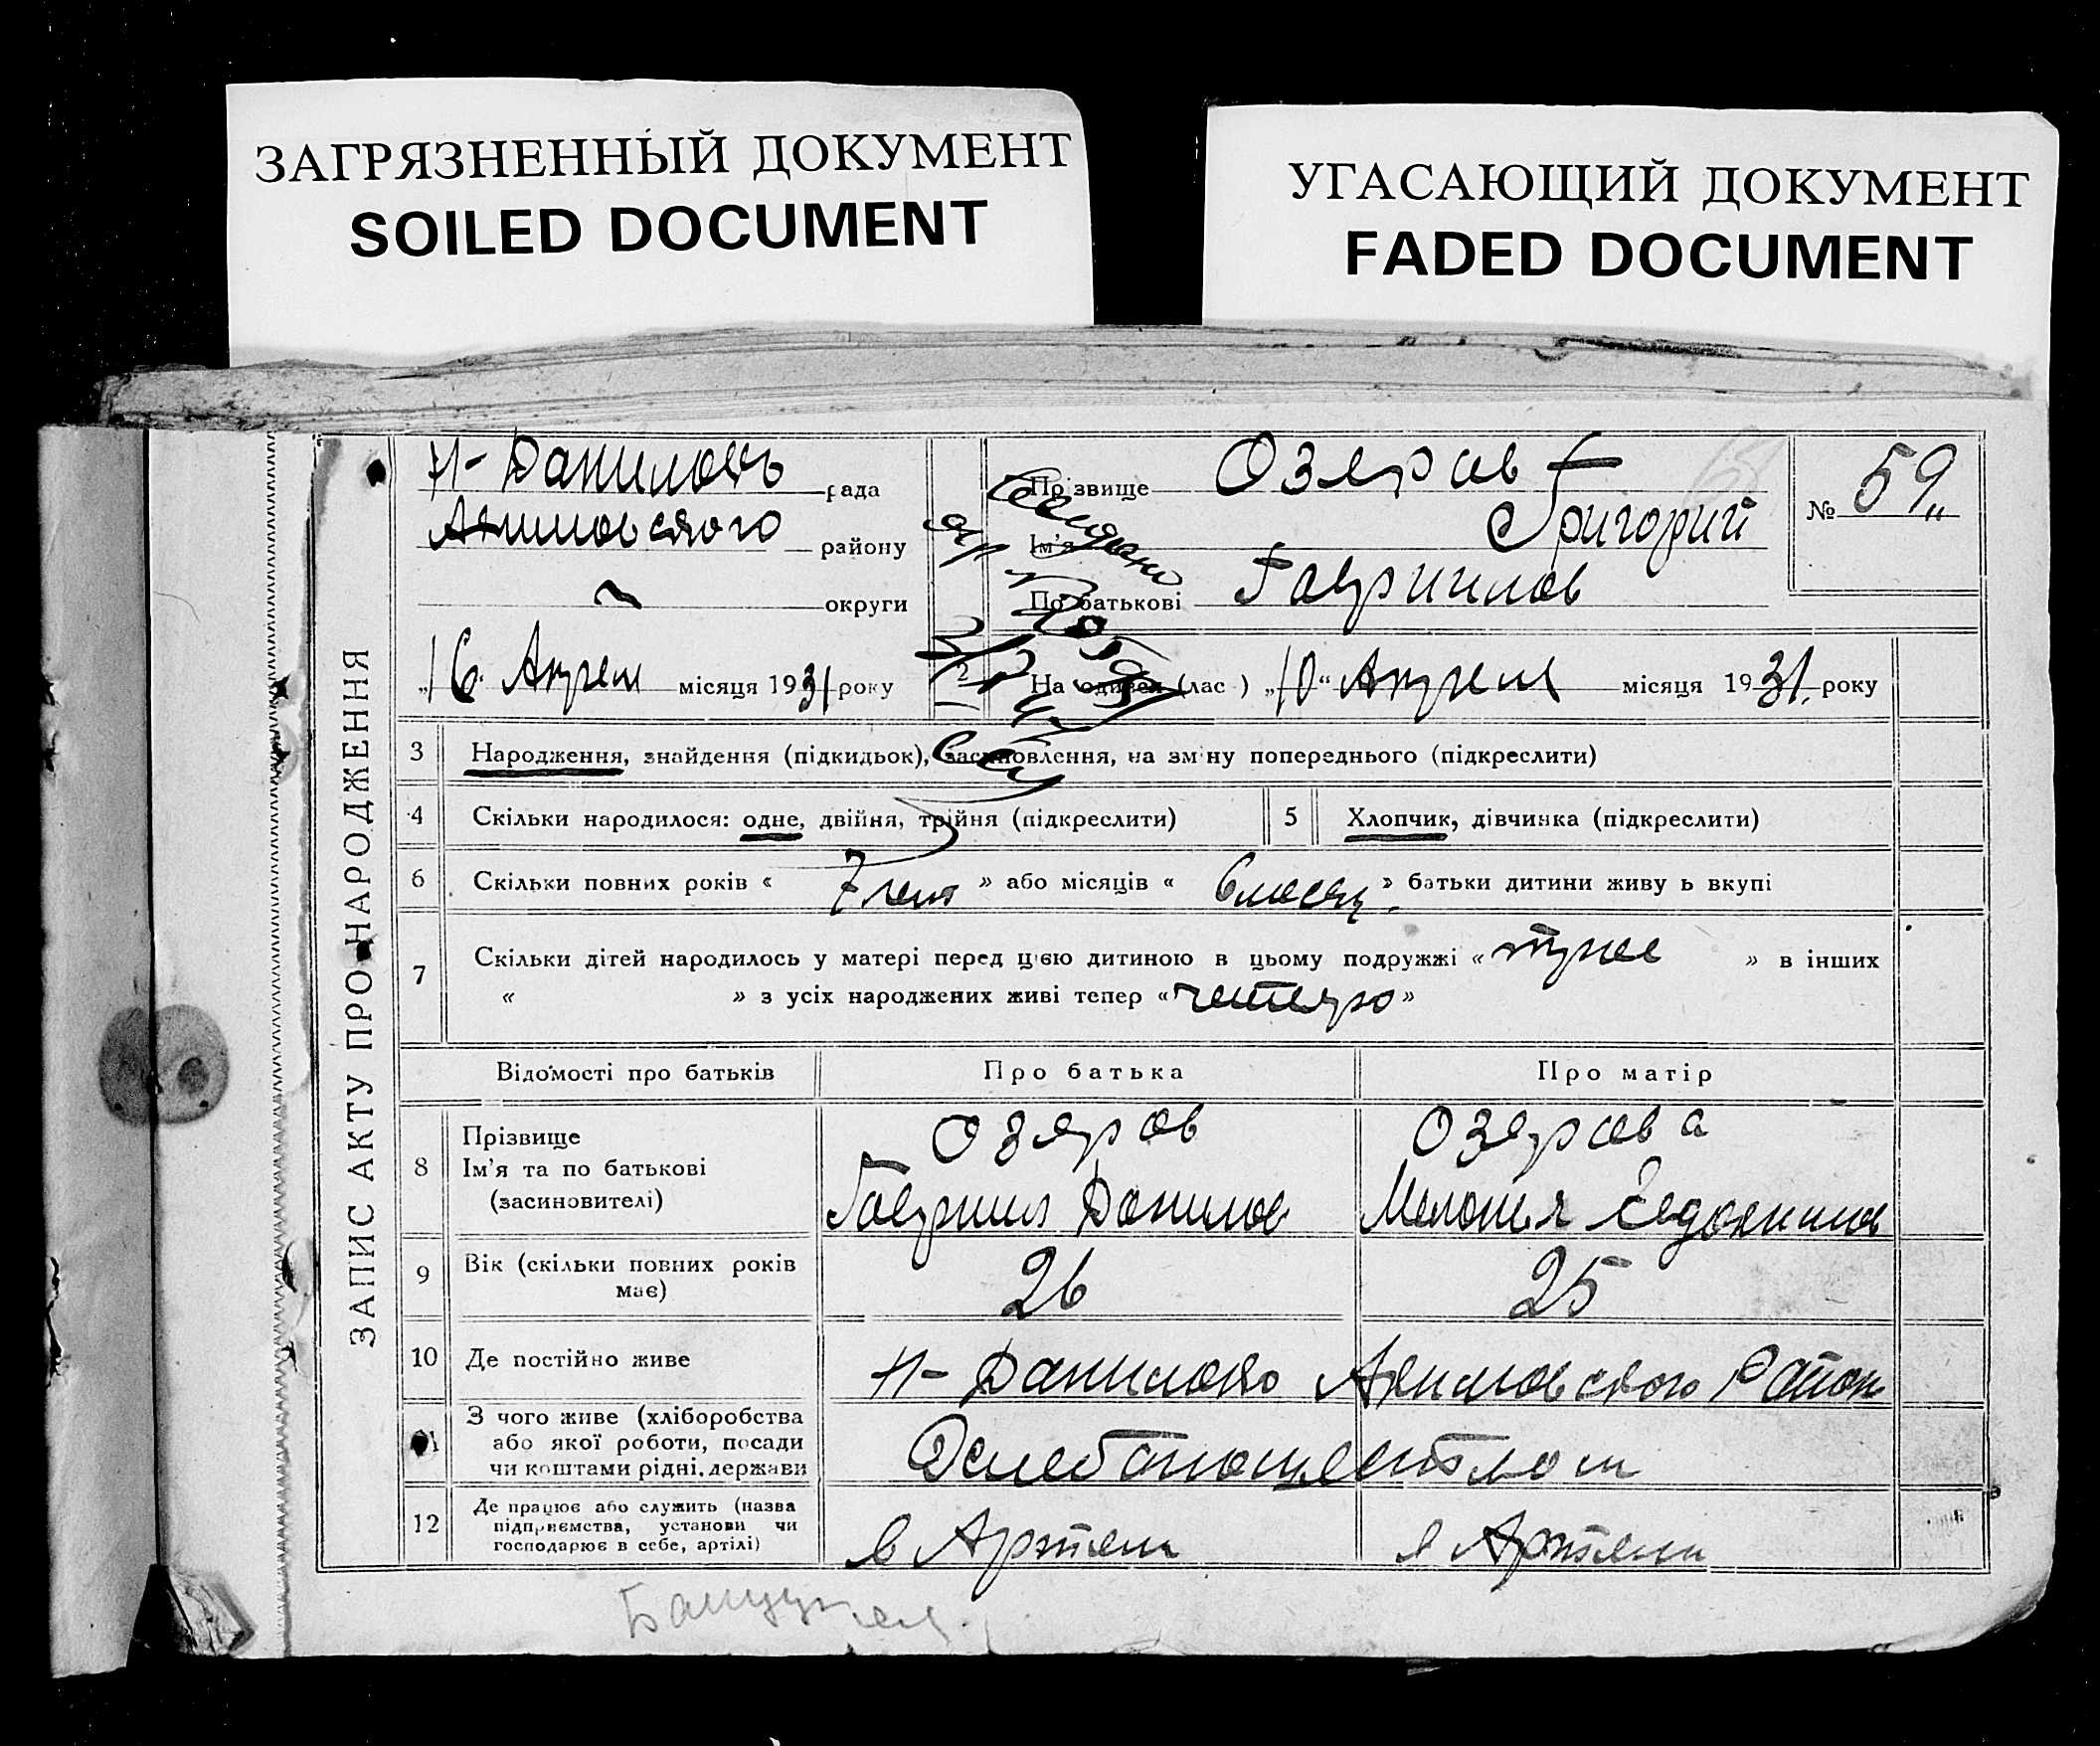 ЗАГРЯЗНЕННЫЙ ДОКУМЕНТ
SOILED DOCUMENT
УГАСАЮЩИЙ ДОКУМЕНТ
FADED DOCUMENT
ЗАПИС АКТУ ПРО НАРОДЖЕННЯ
Н-Даниловк рада
Акимовского району
округи
„16. Апреля місяця 1931 року
Прізвище Озеров
Ім'я Григорий
По батькові Гаврилов
№ 59
2 На один (час) „10“ Апреля місяця 1931. року
3 Народження, знайдення (підкидьок), засиновлення, на зміну попереднього (підкреслити)
4 Скільки народилося: одне, двійня, трійня (підкреслити)
5 Хлопчик, дівчинка (підкреслити)
6 Скільки повних років « 7 лет » або місяців « 6 месяц. » батьки дитини живуть вкупі
7 Скільки дітей народилось у матері перед цією дитиною в цьому подружжі « трое » в інших
« » з усіх народжених живі тепер « четверо »
Відомості про батьків Про батька Про матір
8 Прізвище Озеров Озерова
Ім'я та по батькові Гаврил Данилов Мелония Евдокимов
(засиновителі)
9 Вік (скільки повних років має) 26 25
10 Де постійно живе Н-Даниловко Акимовского Район
11 З чого живе (хліборобства
або якої роботи, посади
чи коштами рідні, держави
Хлебопашеством
12 Де працює або служить (назва
підприємства, установи чи
господарює в себе, артілі)
в Артели в Артели